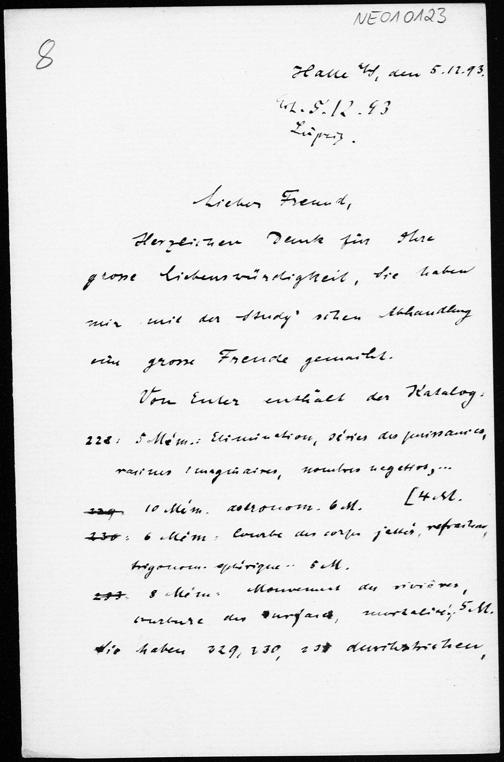 NE010123
8
Halle a/S, den 5.12.93.
5.12.93
Leipzig.
Lieber Freund,
Herzlichen Dank für Ihre
grosse Liebenswürdigkeit, Sie haben
mir mit der Study'schen Abhandlung
eine grosse Freude gemacht.
Von Euler enthält der Katalog:
228: 5 Mém.: Elimination, séries des puissances,
racines imaginaires, nombres negatifs,...
[4 M.
229 10 Mém. astronom. 6 M.
230: 6 Mém: Courbe des corps jettés, refraction,
trigonom. sphérique.. 5 M.
233. 8 Mém: Mouvement des rivières,
courbure des surfaces, mortalité, 5 M.
Sie haben 229, 230, durchstrichen,